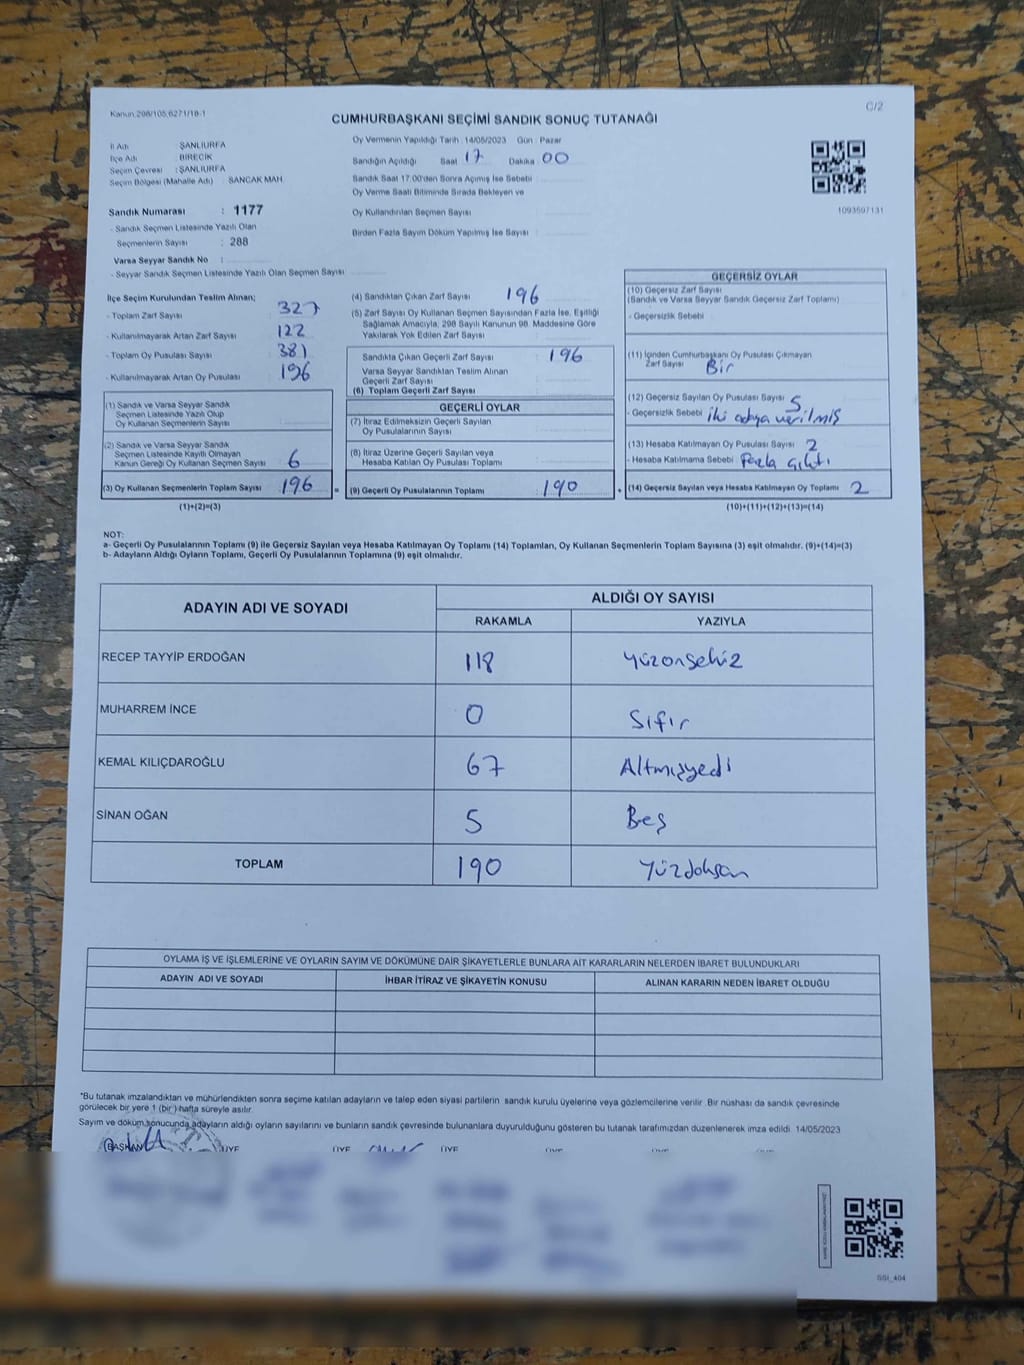 Kanun:298/105;6271/18-1
C/2
CUMHURBAŞKANI SEÇİMİ SANDIK SONUÇ TUTANAĞI
İl Adı : ŞANLIURFA
İlçe Adı : BİRECİK
Seçim Çevresi : ŞANLIURFA
Seçim Bölgesi (Mahalle Adı) : SANCAK MAH.
Oy Vermenin Yapıldığı Tarih 14/05/2023 Gün : Pazar
Sandığın Açıldığı Saat 17 Dakika 00
Sandık Saat 17.00'den Sonra Açılmış İse Sebebi
Oy Verme Saati Bitiminde Sırada Bekleyen ve
Oy Kullandırılan Seçmen Sayısı
Birden Fazla Sayım Döküm Yapılmış İse Sayısı
1093597131
Sandık Numarası : 1177
- Sandık Seçmen Listesinde Yazılı Olan
Seçmenlerin Sayısı : 288
Varsa Seyyar Sandık No :
- Seyyar Sandık Seçmen Listesinde Yazılı Olan Seçmen Sayısı
İlçe Seçim Kurulundan Teslim Alınan;
- Toplam Zarf Sayısı : 327
- Kullanılmayarak Artan Zarf Sayısı : 122
- Toplam Oy Pusulası Sayısı : 381
- Kullanılmayarak Artan Oy Pusulası : 196
(1) Sandık ve Varsa Seyyar Sandık
Seçmen Listesinde Yazılı Olup
Oy Kullanan Seçmenlerin Sayısı
(2) Sandık ve Varsa Seyyar Sandık
Seçmen Listesinde Kayıtlı Olmayan
Kanun Gereği Oy Kullanan Seçmen Sayısı 6
(3) Oy Kullanan Seçmenlerin Toplam Sayısı 196
(1)+(2)=(3)
(4) Sandıktan Çıkan Zarf Sayısı 196
(5) Zarf Sayısı Oy Kullanan Seçmen Sayısından Fazla İse, Eşitliği
Sağlamak Amacıyla, 298 Sayılı Kanunun 98. Maddesine Göre
Yakılarak Yok Edilen Zarf Sayısı
Sandıkta Çıkan Geçerli Zarf Sayısı : 196
Varsa Seyyar Sandıktan Teslim Alınan
Geçerli Zarf Sayısı
(6) Toplam Geçerli Zarf Sayısı
GEÇERLİ OYLAR
(7) İtiraz Edilmeksizin Geçerli Sayılan
Oy Pusulalarının Sayısı
(8) İtiraz Üzerine Geçerli Sayılan veya
Hesaba Katılan Oy Pusulası Toplamı
= (9) Geçerli Oy Pusulalarının Toplamı 190
GEÇERSİZ OYLAR
(10) Geçersiz Zarf Sayısı
(Sandık ve Varsa Seyyar Sandık Geçersiz Zarf Toplamı)
- Geçersizlik Sebebi :
(11) İçinden Cumhurbaşkanı Oy Pusulası Çıkmayan
Zarf Sayısı Bir
(12) Geçersiz Sayılan Oy Pusulası Sayısı 5
- Geçersizlik Sebebi iki adaya verilmiş
(13) Hesaba Katılmayan Oy Pusulası Sayısı 2
- Hesaba Katılmama Sebebi Fazla çıktı
+ (14) Geçersiz Sayılan veya Hesaba Katılmayan Oy Toplamı 2
(10)+(11)+(12)+(13)=(14)
NOT:
a- Geçerli Oy Pusulalarının Toplamı (9) ile Geçersiz Sayılan veya Hesaba Katılmayan Oy Toplamı (14) Toplamları, Oy Kullanan Seçmenlerin Toplam Sayısına (3) eşit olmalıdır. (9)+(14)=(3)
b- Adayların Aldığı Oyların Toplamı, Geçerli Oy Pusulalarının Toplamına (9) eşit olmalıdır.
ADAYIN ADI VE SOYADI ALDIĞI OY SAYISI
RAKAMLA YAZIYLA
RECEP TAYYİP ERDOĞAN 118 Yüzonsekiz
MUHARREM İNCE 0 Sıfır
KEMAL KILIÇDAROĞLU 67 Altmışyedi
SİNAN OĞAN 5 Beş
TOPLAM 190 Yüzdoksan
OYLAMA İŞ VE İŞLEMLERİNE VE OYLARIN SAYIM VE DÖKÜMÜNE DAİR ŞİKAYETLERLE BUNLARA AİT KARARLARIN NELERDEN İBARET BULUNDUKLARI
ADAYIN ADI VE SOYADI İHBAR İTİRAZ VE ŞİKAYETİN KONUSU ALINAN KARARIN NEDEN İBARET OLDUĞU
*Bu tutanak imzalandıktan ve mühürlendikten sonra seçime katılan adayların ve talep eden siyasi partilerin sandık kurulu üyelerine veya gözlemcilerine verilir. Bir nüshası da sandık çevresinde
görülecek bir yere 1 (bir ) hafta süreyle asılır.
Sayım ve döküm sonucunda adayların aldığı oyların sayılarını ve bunların sandık çevresinde bulunanlara duyurulduğunu gösteren bu tutanak tarafımızdan düzenlenerek imza edildi. 14/05/2023
BAŞKAN ÜYE ÜYE ÜYE
SSI_404